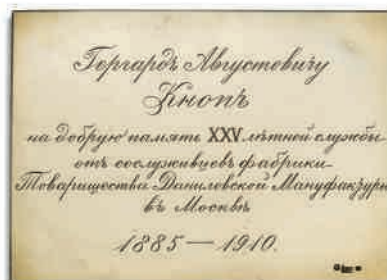 Гергардъ Августовичу
Кнопъ
на добрую память XXV лѣтней службы
отъ сослуживцевъ фабрики
Товарищества Даниловской Мануфактуры
въ Москвѣ
1885 — 1910.